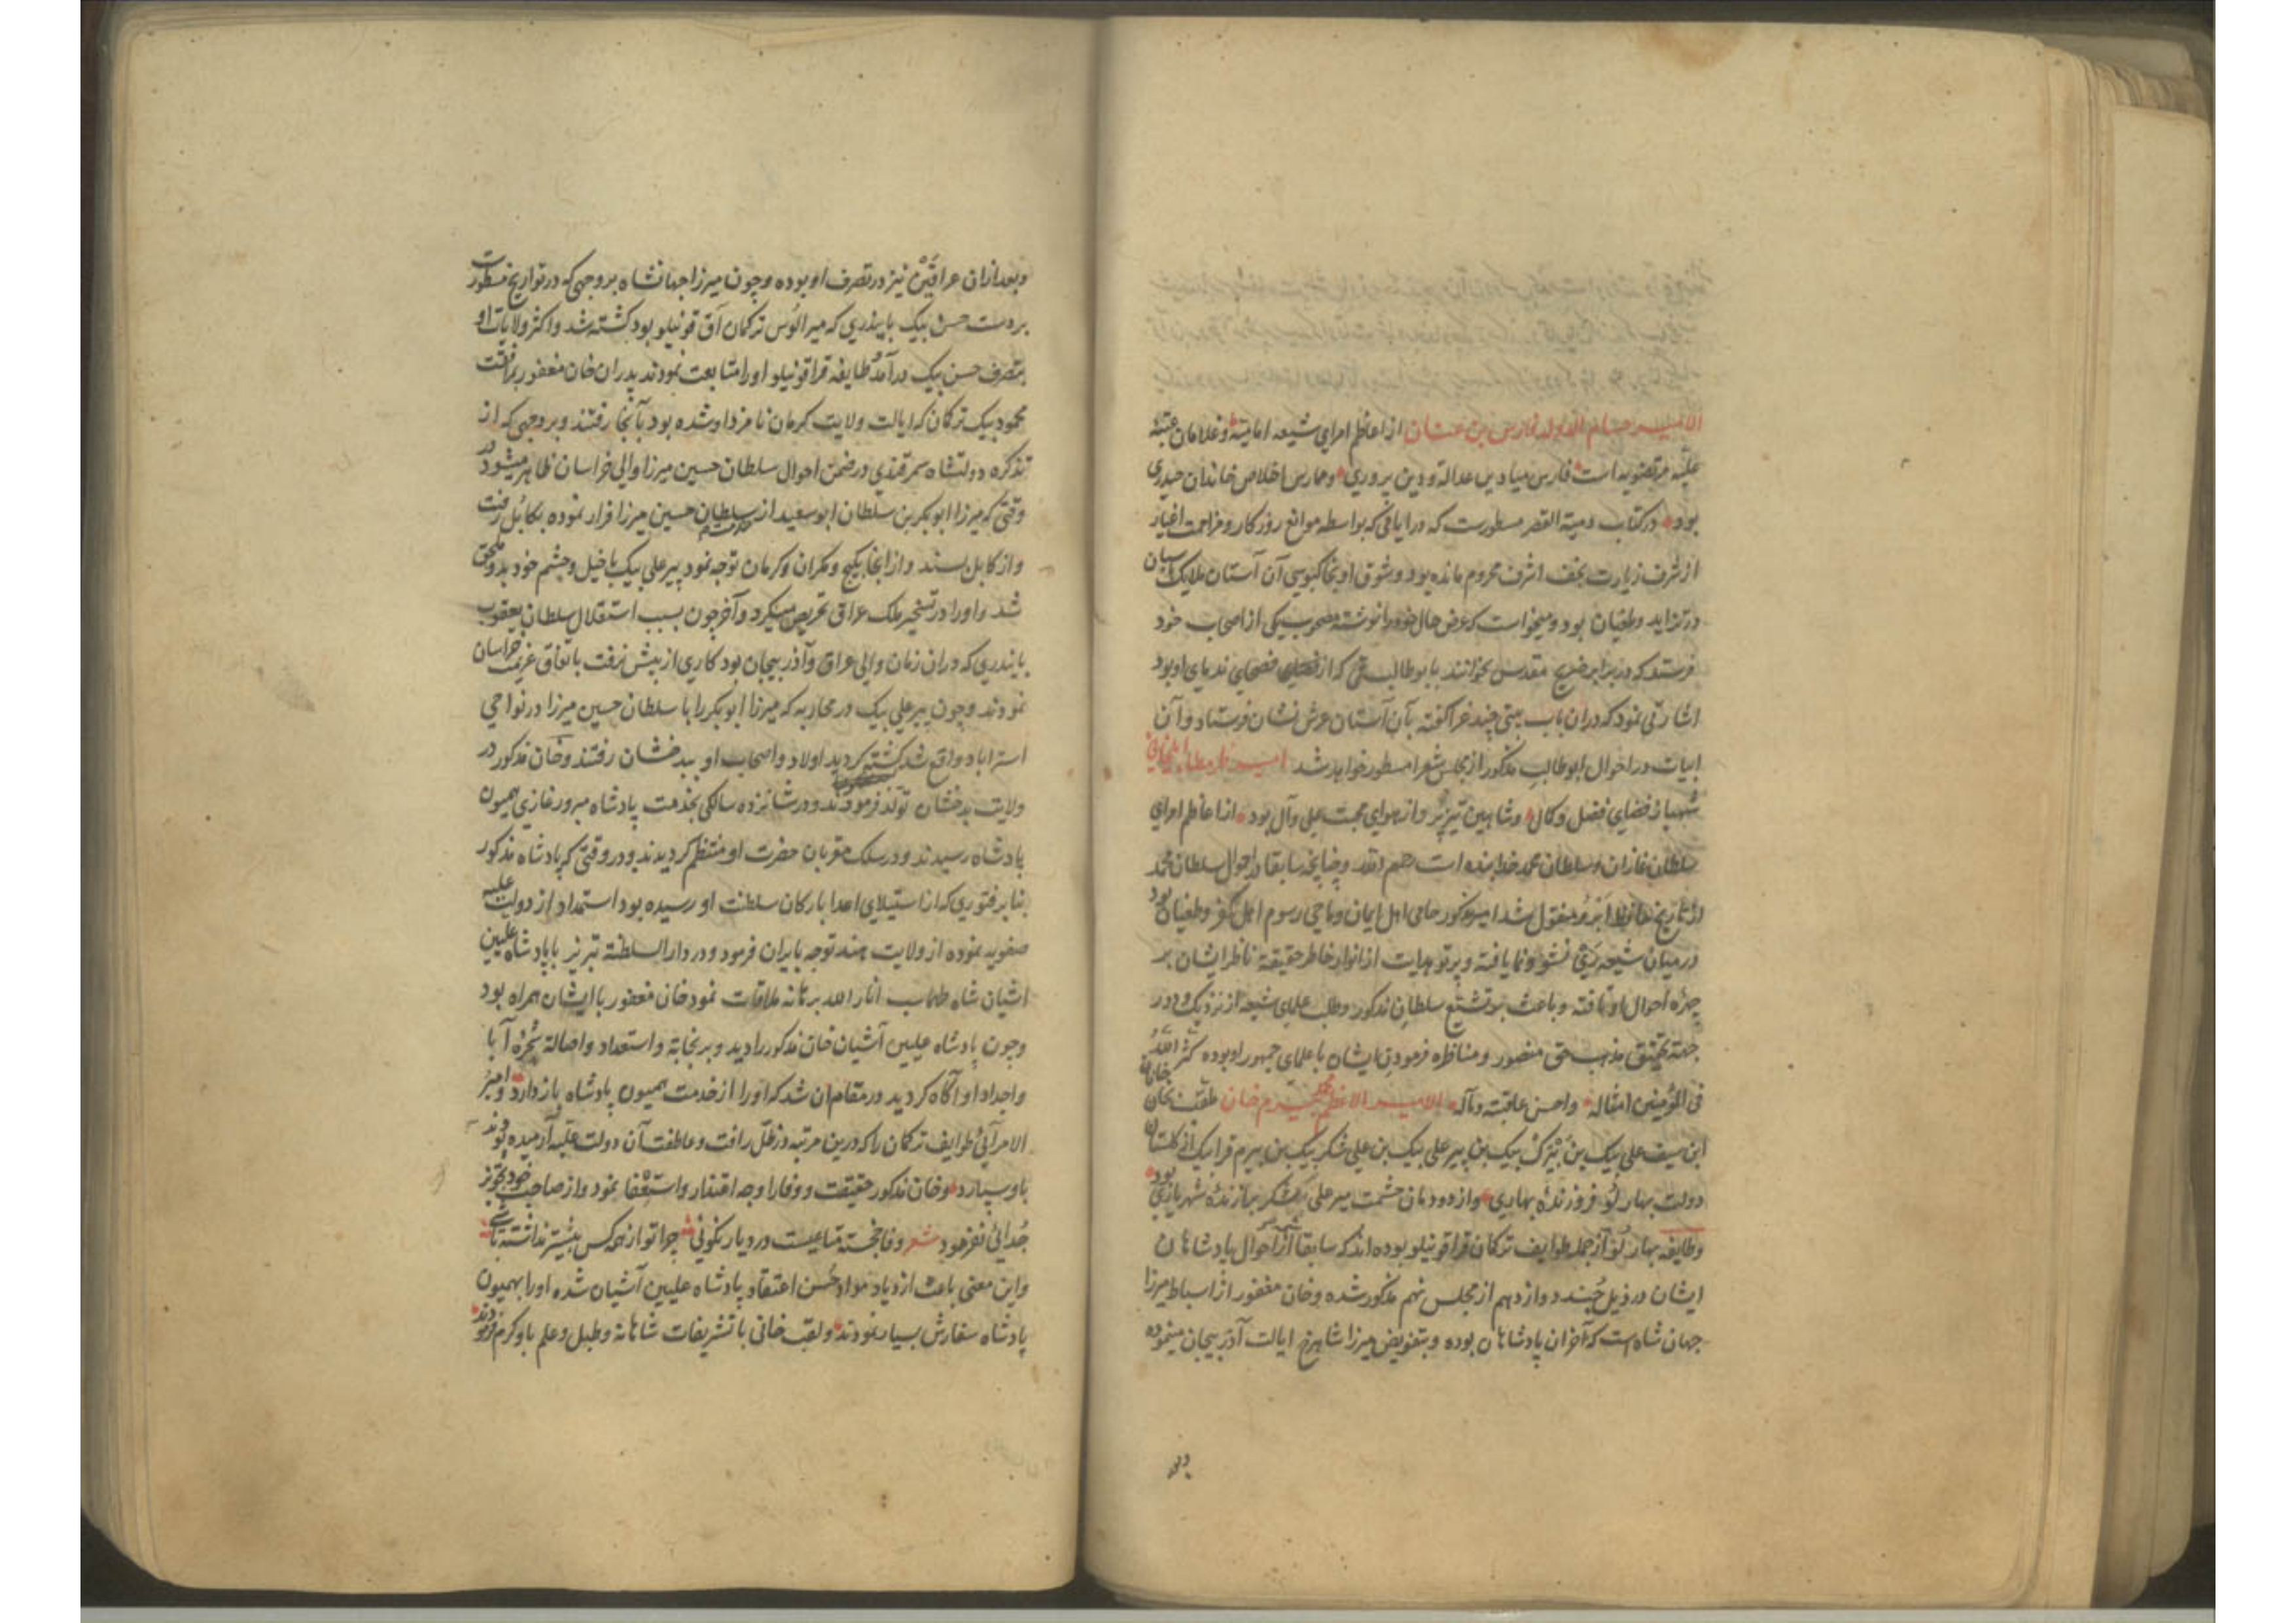 الامیر حسام الدوله فارس بن عنان از اعاظم امرای شیعه امامیه و غلامان عتبه
علیّه مرتضویه است فارس میادین عدالة و دین پروری و ممارس اخلاص خاندان حیدری
بود در کتاب دمیة القصر مسطورست که در ایامی که بواسطه موانع روزکار و مزاحمت اغیار
از شرف زیارت نجف اشرف محروم مانده بود و شوق او بخاکبوسی آن آستان ملایک پاسبان
در تزاید و طغیان بود و میخواست که عرض حال خود را نوشته مصحوب یکی از اصحاب خود
فرستد که در برابر ضریح مقدس بخوانند بابو طالب که از فصحای ندمای او بود
اشارتی نمود که دران باب بیتی چند غرا کفته بآن آستان عرش نشان فرستاد و آن
ابیات در احوال ابو طالب مذکور از مجلس شعرا مسطور خواهد شد امیر
شهباز فضای فضل و کمال و شاهین تیزپرواز هوای محبت علی و آل بود از اعاظم امرای
سلطان غازان و سلطان محمد خدابنده است و چنانچه سابقا در احوال سلطان محمد
از تاریخ حافظ ابرو منقول شد امیر مذکور حامی اهل ایمان و ماحی رسوم اهل کفر و طغیان بود
در میان شیعه ری نشو و نما یافته و پرتو هدایت از انوار خاطر حقیقة ناظر ایشان بر
چهره احوال او تافته و باعث بر تشیّع سلطان مذکور و طلب علمای شیعه از نزدیک و دور
جهة تحقیق مذهب حق منصور و مناظره فرمودن ایشان با علمای جمهور او بوده کثر الله
فی المؤمنین امثاله و احسن عاقبته و مآله الامیر الاعظم محمد بیرم خان ملقب بخان خانان
ابن سیف علی بیک بن بیرک بیک بن پیر علی بیک بن علی شکر بیک بن بیرم قرا بیک از کلستان
دولت بهارلو فروزنده بهاری و از دودمان حشمت میر علی شکر برازنده شهریاری بود
و طایفه بهارلو از جمله طوایف ترکمان قراقوینلو بوده اند که سابقا شمه از احوال پادشاهان
ایشان در ذیل جُند دوازدهم از مجلس نهم مذکور شده و خان مغفور از اسباط میرزا
جهان شاه است که آخر آن پادشاهان بوده و بتفویض میرزا شاهرخ ایالت آذربیجان مینموده
و بعد
و بعد ازان عراقَین نیز در تصرف او بوده و چون میرزا جهانشاه بر وجهی که در تواریخ مسطورست
بر دست حسن بیک بایندری که میر الوس ترکمان آق قوینلو بود کشته شد و اکثر ولایات او
بتصرف حسن بیک درآمد طایفه قراقوینلو او را متابعت نمودند پدران خان مغفور برفاقت
محمود بیک ترکمان که ایالت ولایت کرمان نامزد او شده بود بآنجا رفتند و بر وجهی که از
تذکره دولتشاه سمرقندی در ضمن احوال سلطان حسین میرزا والی خراسان ظاهر میشود در
وقتی که میرزا ابوبکر بن سلطان ابو سعید از سلطان حسین میرزا فرار نموده بکابل رفت
و از کابل بسند و از انجا بکیج و مکران و کرمان توجه نمود پیر علی بیک با خیل و حشم خود بدو ملحق
شد و او را در تسخیر ملک عراق تحریص میکرد و آخر چون بسبب استقلال سلطان یعقوب
بایندری که دران زمان والی عراق و آذربیجان بود کاری از پیش نرفت باتفاق عزیمت خراسان
نمودند و چون پیر علی بیک در محاربه که میرزا ابوبکر را با سلطان حسین میرزا در نواحی
استراباد واقع شد کشته کردید اولاد و اصحاب او ببدخشان رفتند و خان مذکور در
ولایت بدخشان تولّد فرمودند و در شانزده سالکی بخدمت پادشاه مبرور غازی همیون
پادشاه رسیدند و در سلک مقربان حضرت او منتظم کردیدند و در وقتی که پادشاه مذکور
بنا بر فتوری که از استیلای اعدا بارکان سلطنت او رسیده بود استمداد از دولت علیه
صفویه نموده از ولایت هند توجه بایران فرمود و در دار السلطنة تبریز با پادشاه علیین
اشیان شاه طهماسب انار الله برهانه ملاقات نمود خان مغفور با ایشان همراه بود
و چون پادشاه علیین آشیان خان مذکور را دید و بر نجابة و استعداد و اصالة شجره آبا
و اجداد او آکاه کردید در مقام آن شد که او را از خدمت همیون پادشاه باز دارد و امیر
الامرائی طوایف ترکمان را که درین مرتبه در ظلّ رافت و عاطفت آن دولت علیّه آرمیده بودند
باو سپارد و خان مذکور حقیقت و وفا را وجه اعتذار و استعفا نمود و از صاحب خود تجویز
جُدائی نفرمود شعر وفا خجسته متاعیست در دیار نکوئی چرا تو از همه کس بیشتر نداشته باشی
و این معنی باعث ازدیاد مواد حُسن اعتقاد پادشاه علیین آشیان شده او را بهمیون
پادشاه سفارش بسیار نمودند و لقب خانی با تشریفات شاهانه و طبل و علم باو کرم فرمودند